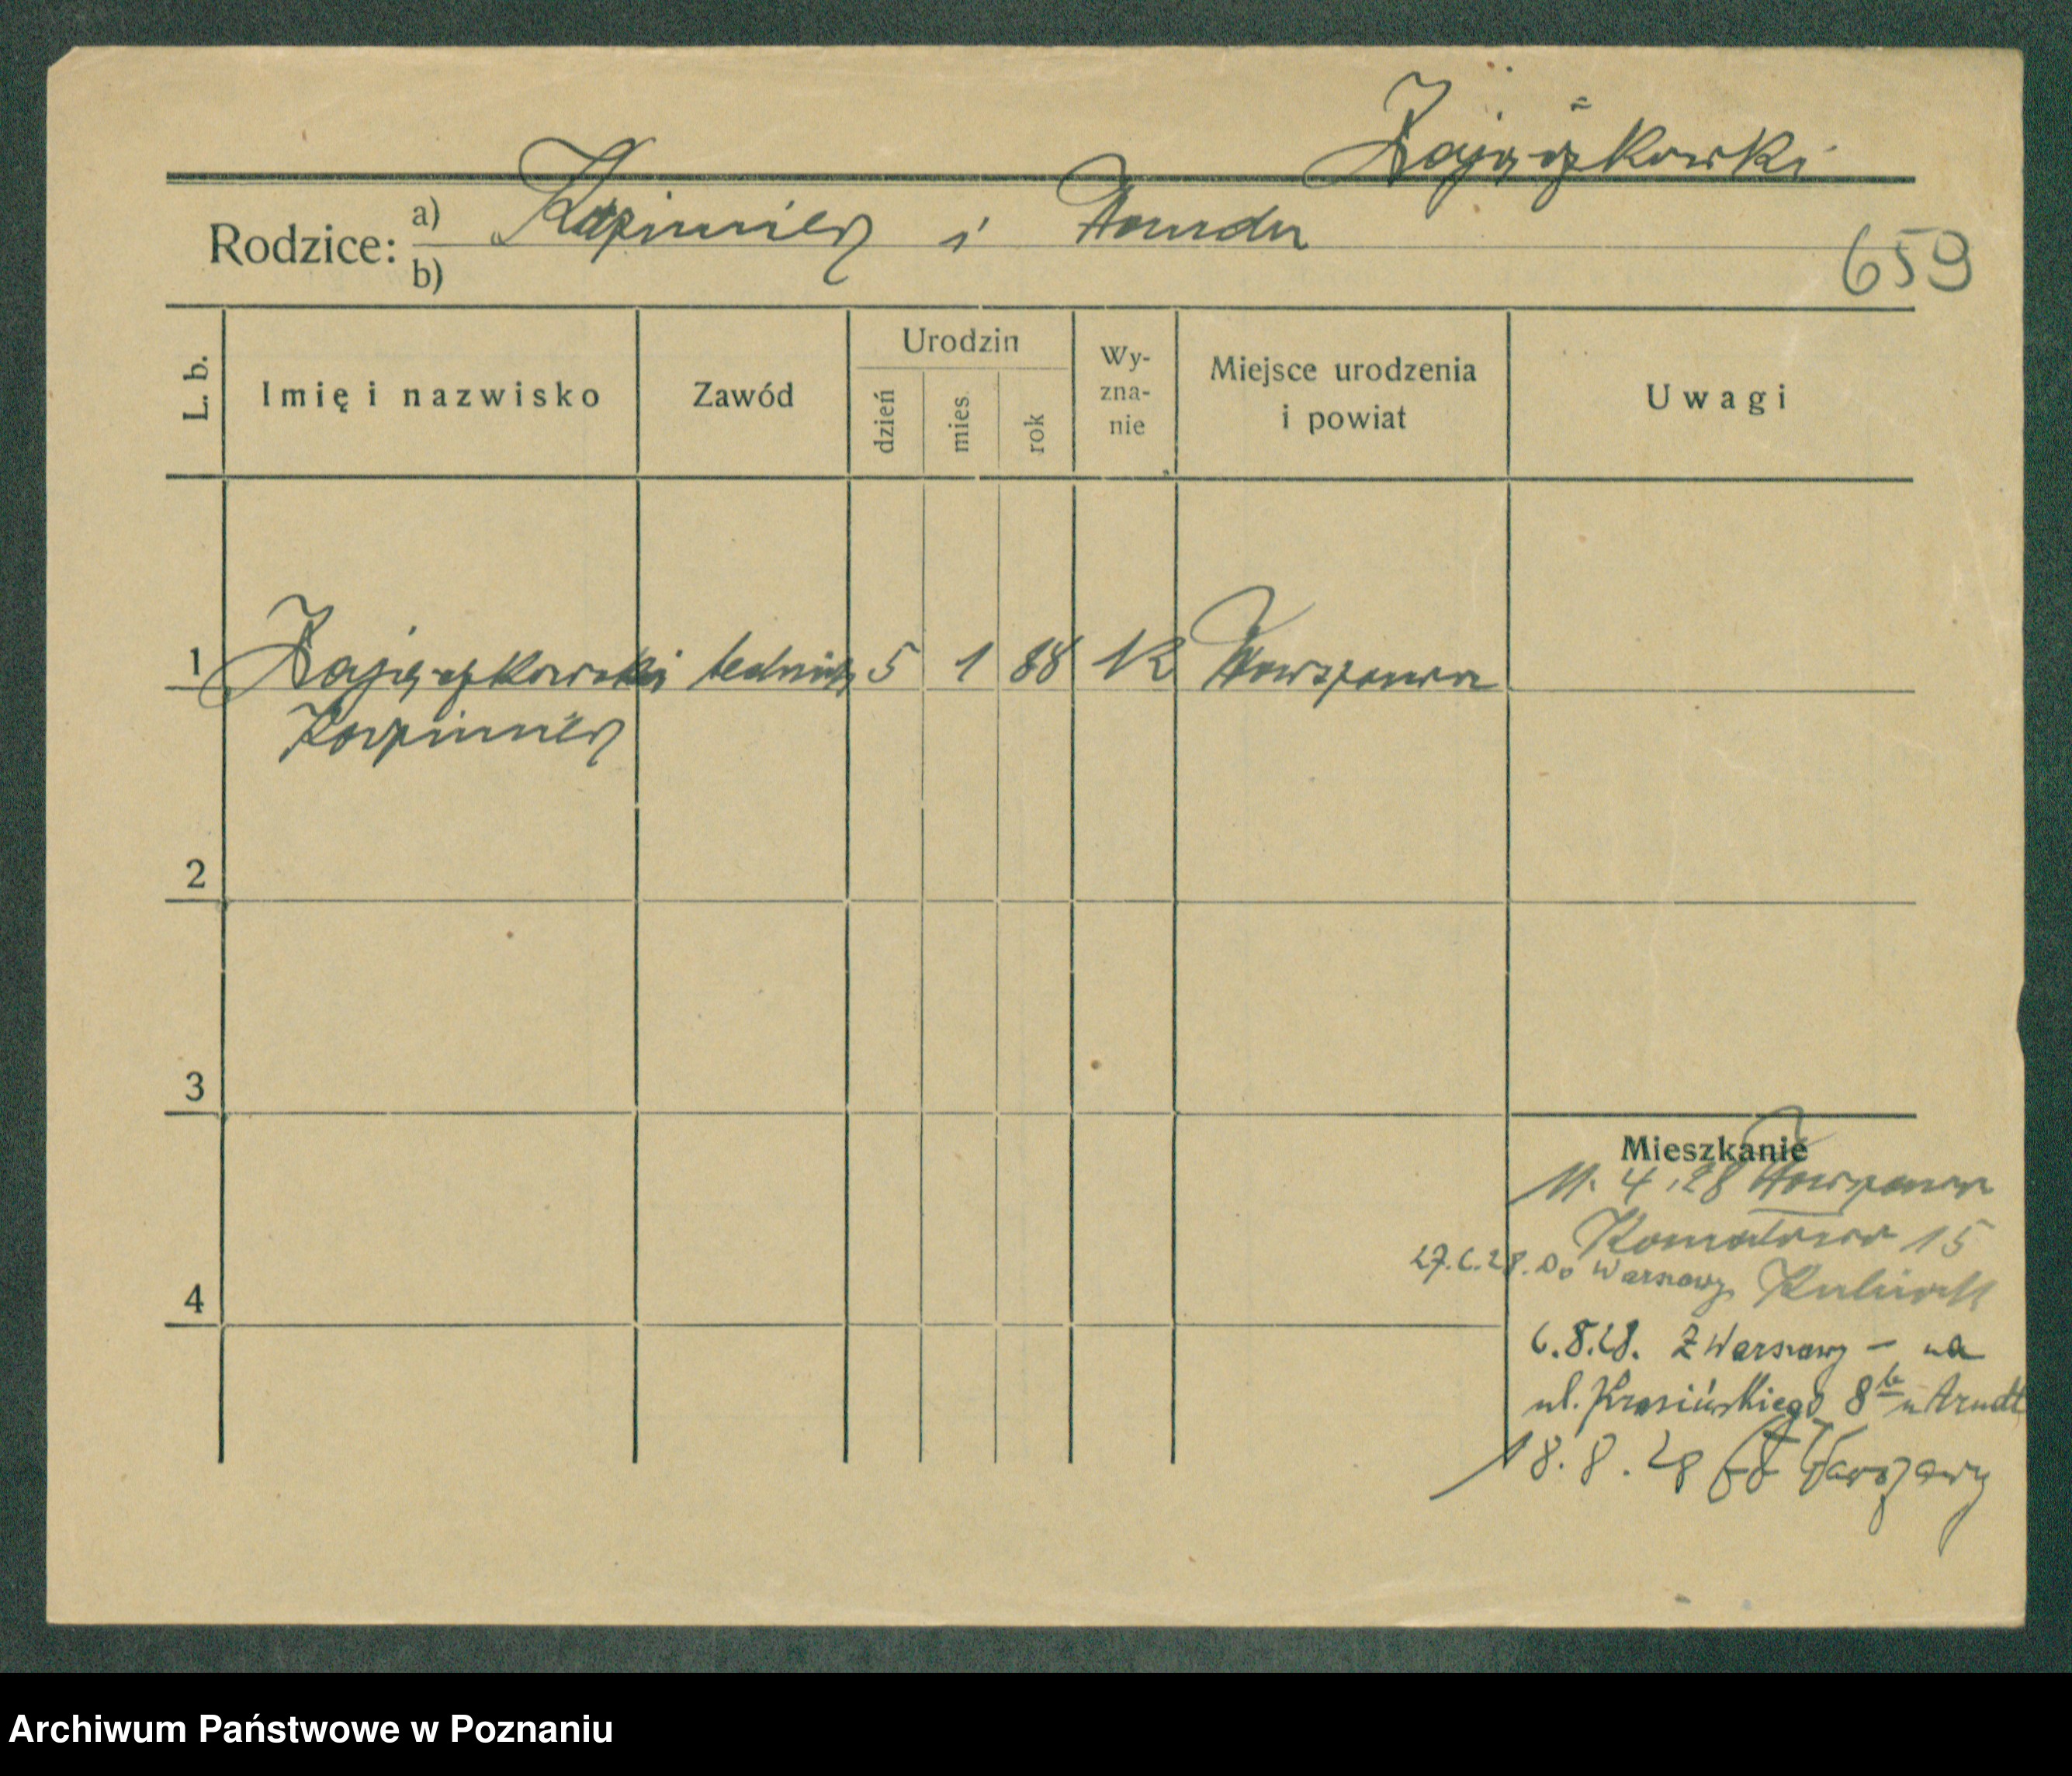 Zajączkowski
Rodzice: a) Kazimierz i Wanda
b)
659
L. b. Imię i nazwisko Zawód Urodzin dzień mies. rok Wy-zna-nie Miejsce urodzenia i powiat Uwagi
1 Zajączkowski technik 5 1 88 K Warszawa
Kazimierz
2
3
4
Mieszkanie
11. 4. 28 Warszawa
15
27.6.28. Do Warszawy
6.8.28. Z Warszawy – na
ul. Krasińskiego 8 u Arndt
18. 8. 28 Warszawy
Archiwum Państwowe w Poznaniu